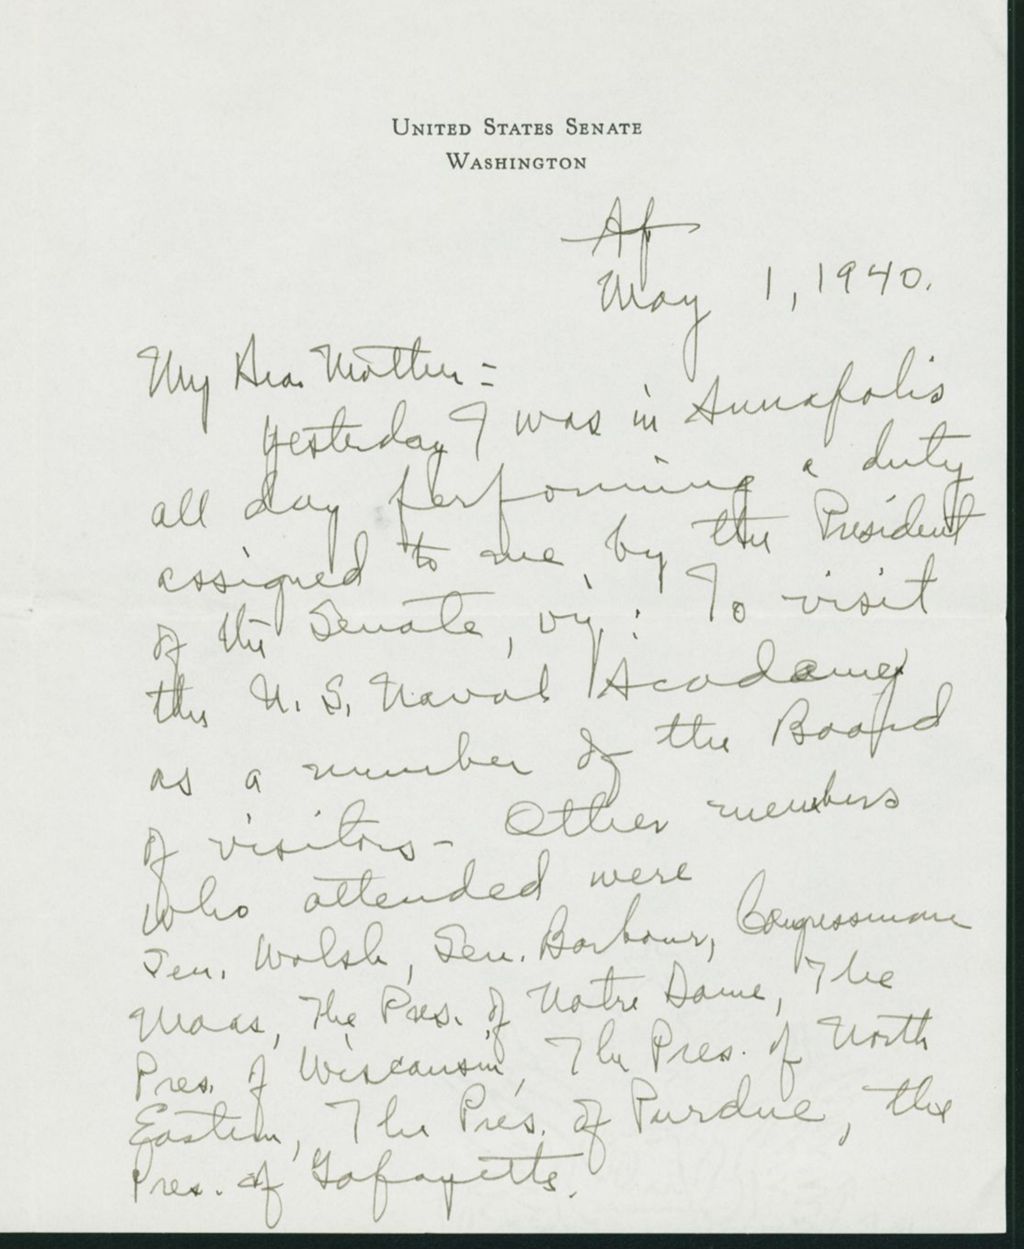 UNITED STATES SENATE
WASHINGTON
Ap
May 1, 1940.
My Dear Mother:
Yesterday I was in Annapolis
all day performing a duty
assigned to me by the President
of the Senate, viz: To visit
the U. S. Naval Academy
as a member of the Board
of visitors - Other members
who attended were
Sen. Walsh, Sen. Barbour, Congressman
Maas, The Pres. of Notre Dame, The
Pres. of Wisconsin, The Pres. of North
Eastern, The Pres. of Purdue, the
Pres. of Lafayette.